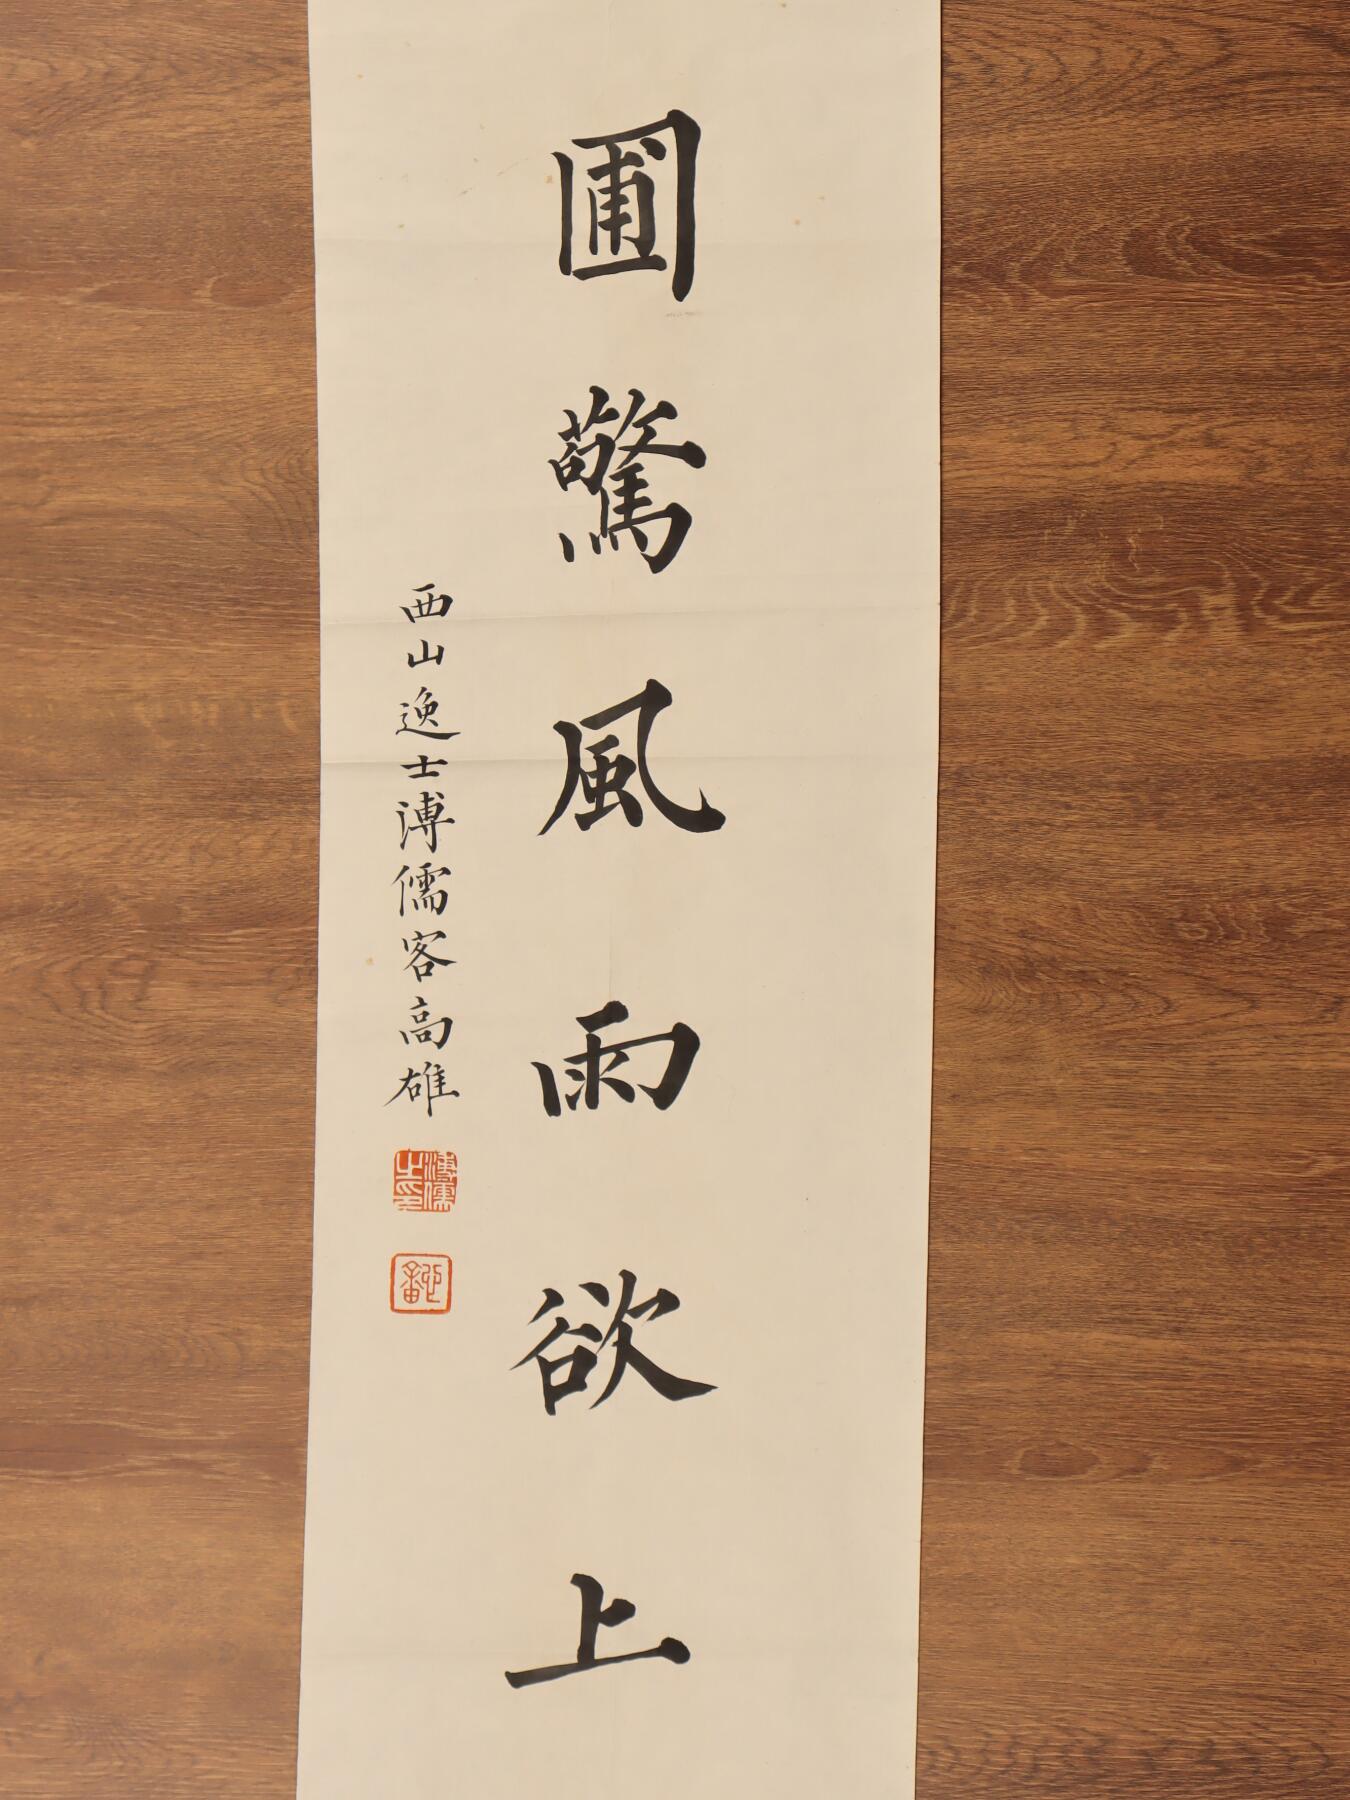 圃驚風雨欲上
西山逸士溥儒客高雄
溥儒之印